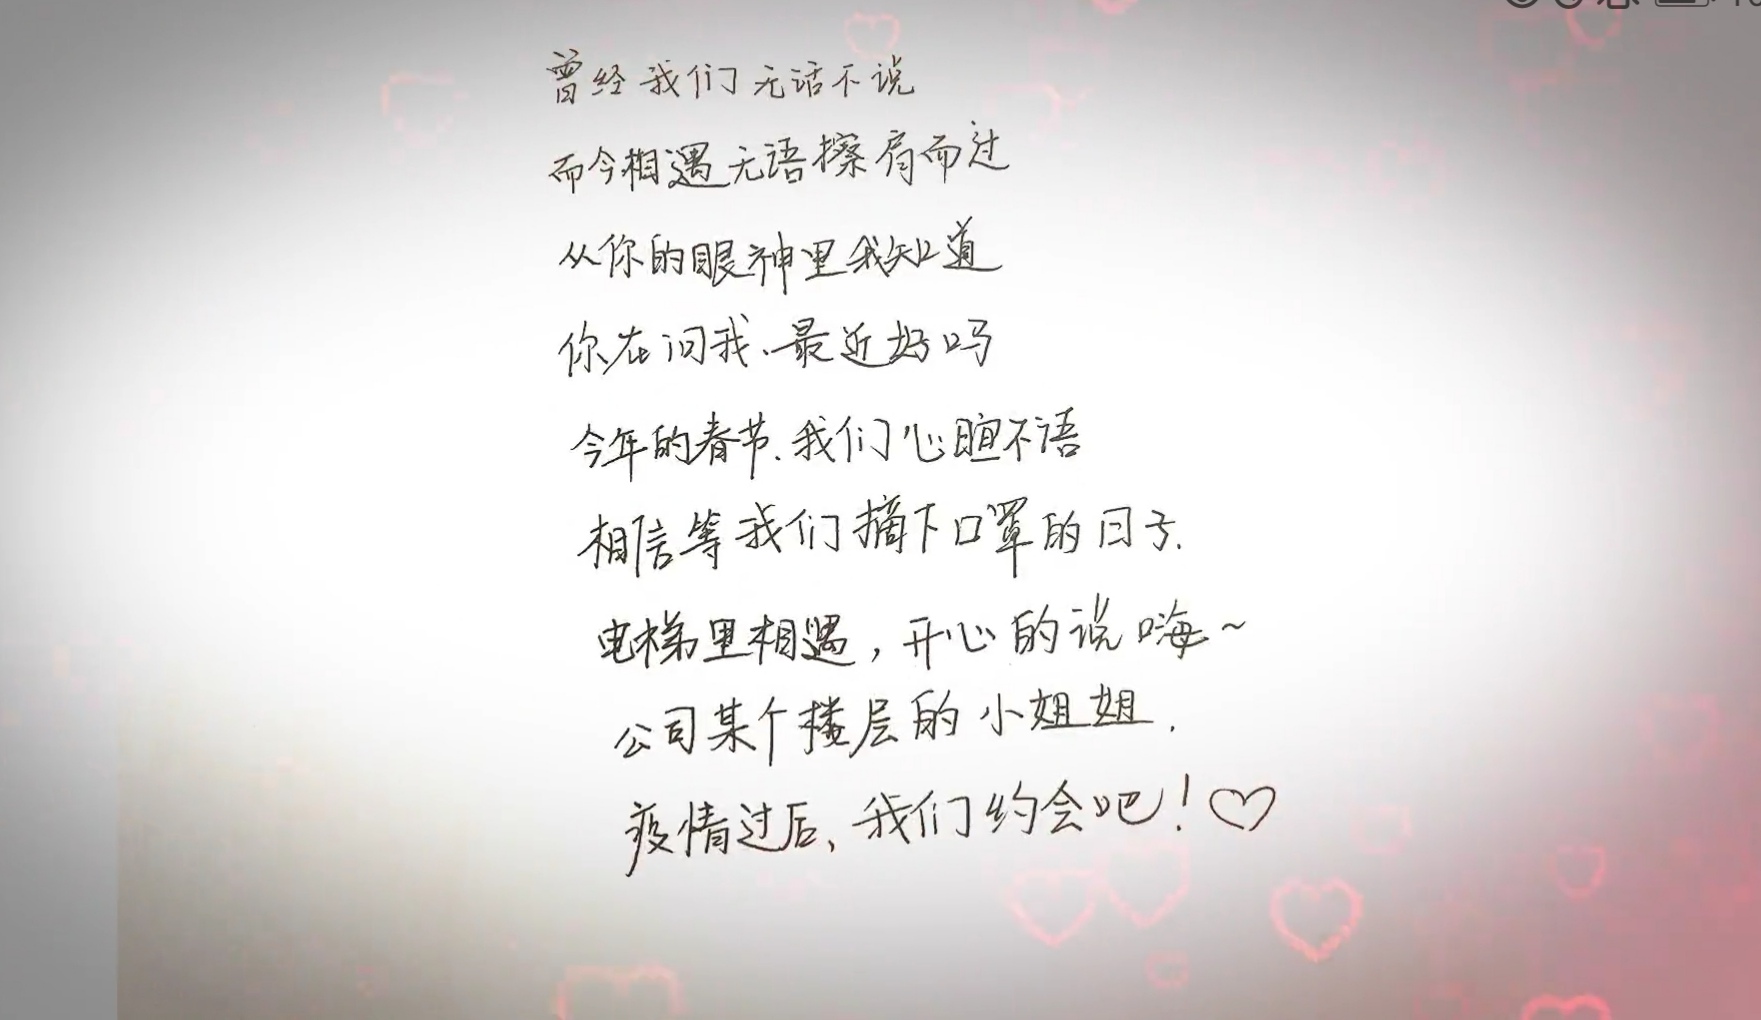 曾经我们无话不说
而今相遇无语擦肩而过
从你的眼神里我知道
你在问我、最近好吗
今年的春节、我们心暄不语
相信等我们摘下口罩的日子.
电梯里相遇，开心的说嗨~
公司某个楼层的小姐姐.
疫情过后、我们约会吧！♡